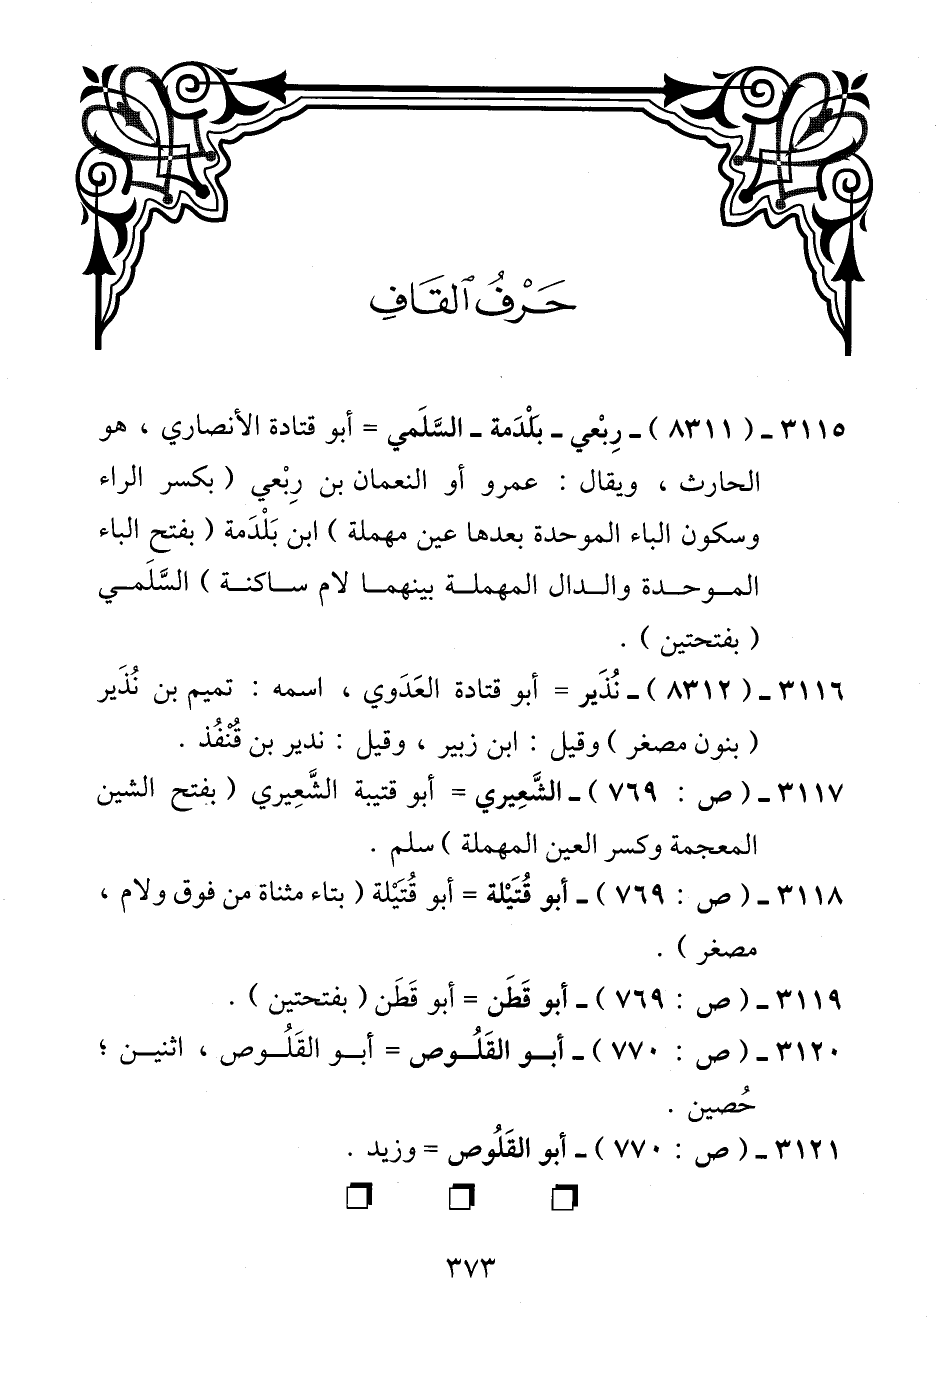 حَرْفُ ٱلقَافِ
٣١١٥ - ( ٨٣١١ ) - رِبْعي - بَلْدَمة - السَّلَمي = أبو قتادة الأنصاري ، هو
الحارث ، ويقال : عمرو أو النعمان بن رِبْعي ( بكسر الراء
وسكون الباء الموحدة بعدها عين مهملة ) ابن بَلْدَمة ( بفتح الباء
الموحدة والدال المهملة بينهما لام ساكنة ) السَّلَمي
( بفتحتين ) .
٣١١٦ - ( ٨٣١٢ ) - نُذَير = أبو قتادة العَدَوي ، اسمه : تميم بن نُذَير
( بنون مصغر ) وقيل : ابن زبير ، وقيل : ندير بن قُنْفُذ .
٣١١٧ - ( ص : ٧٦٩ ) - الشَّعِيري = أبو قتيبة الشَّعِيري ( بفتح الشين
المعجمة وكسر العين المهملة ) سلم .
٣١١٨ - ( ص : ٧٦٩ ) - أبو قُتَيْلة = أبو قُتَيْلة ( بتاء مثناة من فوق ولام ،
مصغر ) .
٣١١٩ - ( ص : ٧٦٩ ) - أبو قَطَن = أبو قَطَن ( بفتحتين ) .
٣١٢٠ - ( ص : ٧٧٠ ) - أبو القَلُوص = أبو القَلُوص ، اثنين ؛
حُصين .
٣١٢١ - ( ص : ٧٧٠ ) - أبو القَلُوص = وزيد .
٣٧٣